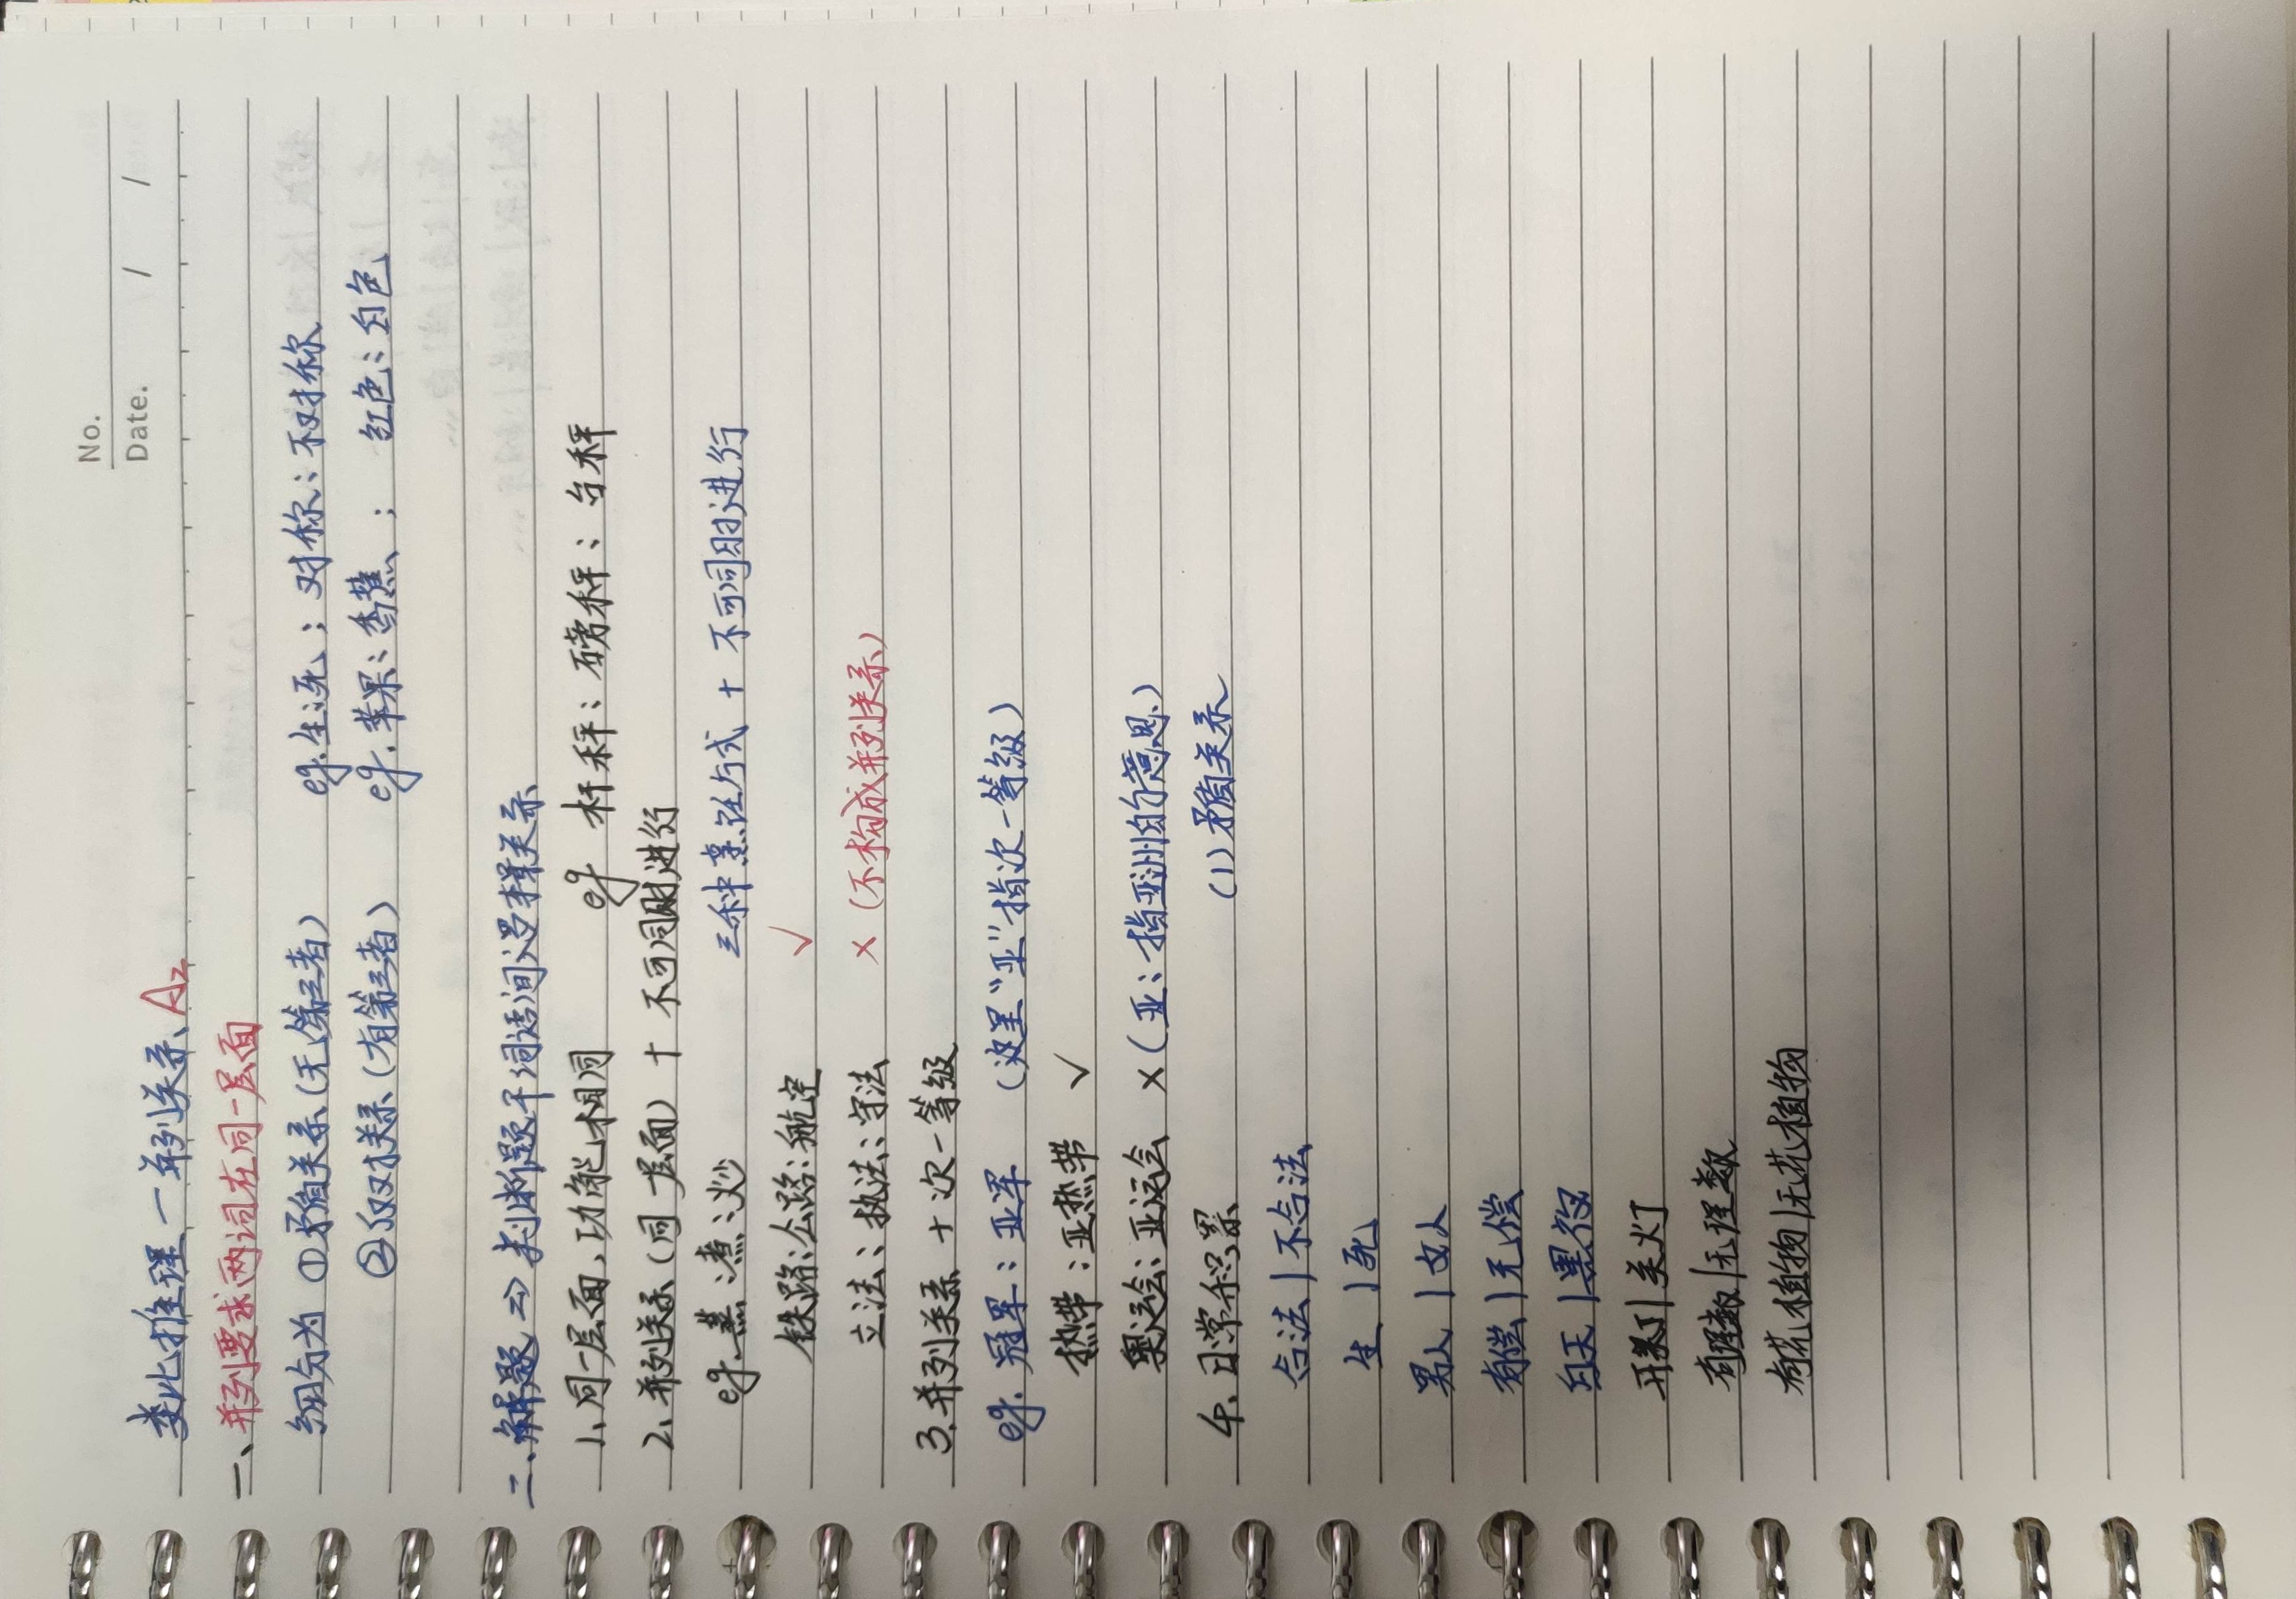 No.
Date. / /
类比推理—并列关系 A2
一、并列要求两词在同一层面
细分为 ①矛盾关系(无第三者) eg.生:死; 对称:不对称
②反对关系(有第三者) eg.苹果:香蕉; 红色:白色
二、解题 => 判断题干词语间逻辑关系
1、同一层面,功能相同 eg 杆秤:磅秤:台秤
2、并列关系(同一层面) + 不可同时进行
eg.蒸:煮:炒 三种烹饪方式 + 不可同时进行
铁路:公路:航空 ✓
立法:执法:守法 ×(不构成并列关系)
3.并列关系 + 次一等级
eg. 冠军:亚军 (这里“亚”指次一等级)
热带:亚热带 ✓
奥运会:亚运会 ×(亚:指亚洲的意思)
4、日常积累 (1)矛盾关系
合法|不合法
生|死
男人|女人
有偿|无偿
白天|黑夜
开灯|关灯
有理数|无理数
有花植物|无花植物